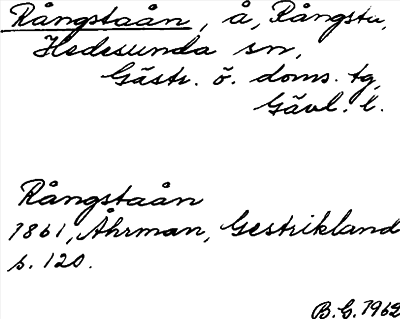 Rångstaån, å, Rångsta,
Hedesunda sn,
Gästr. ö. doms. tg,
Gävl. l.
Rångstaån
1861, Åhrman, Gestrikland
s. 120.
B.G. 1962